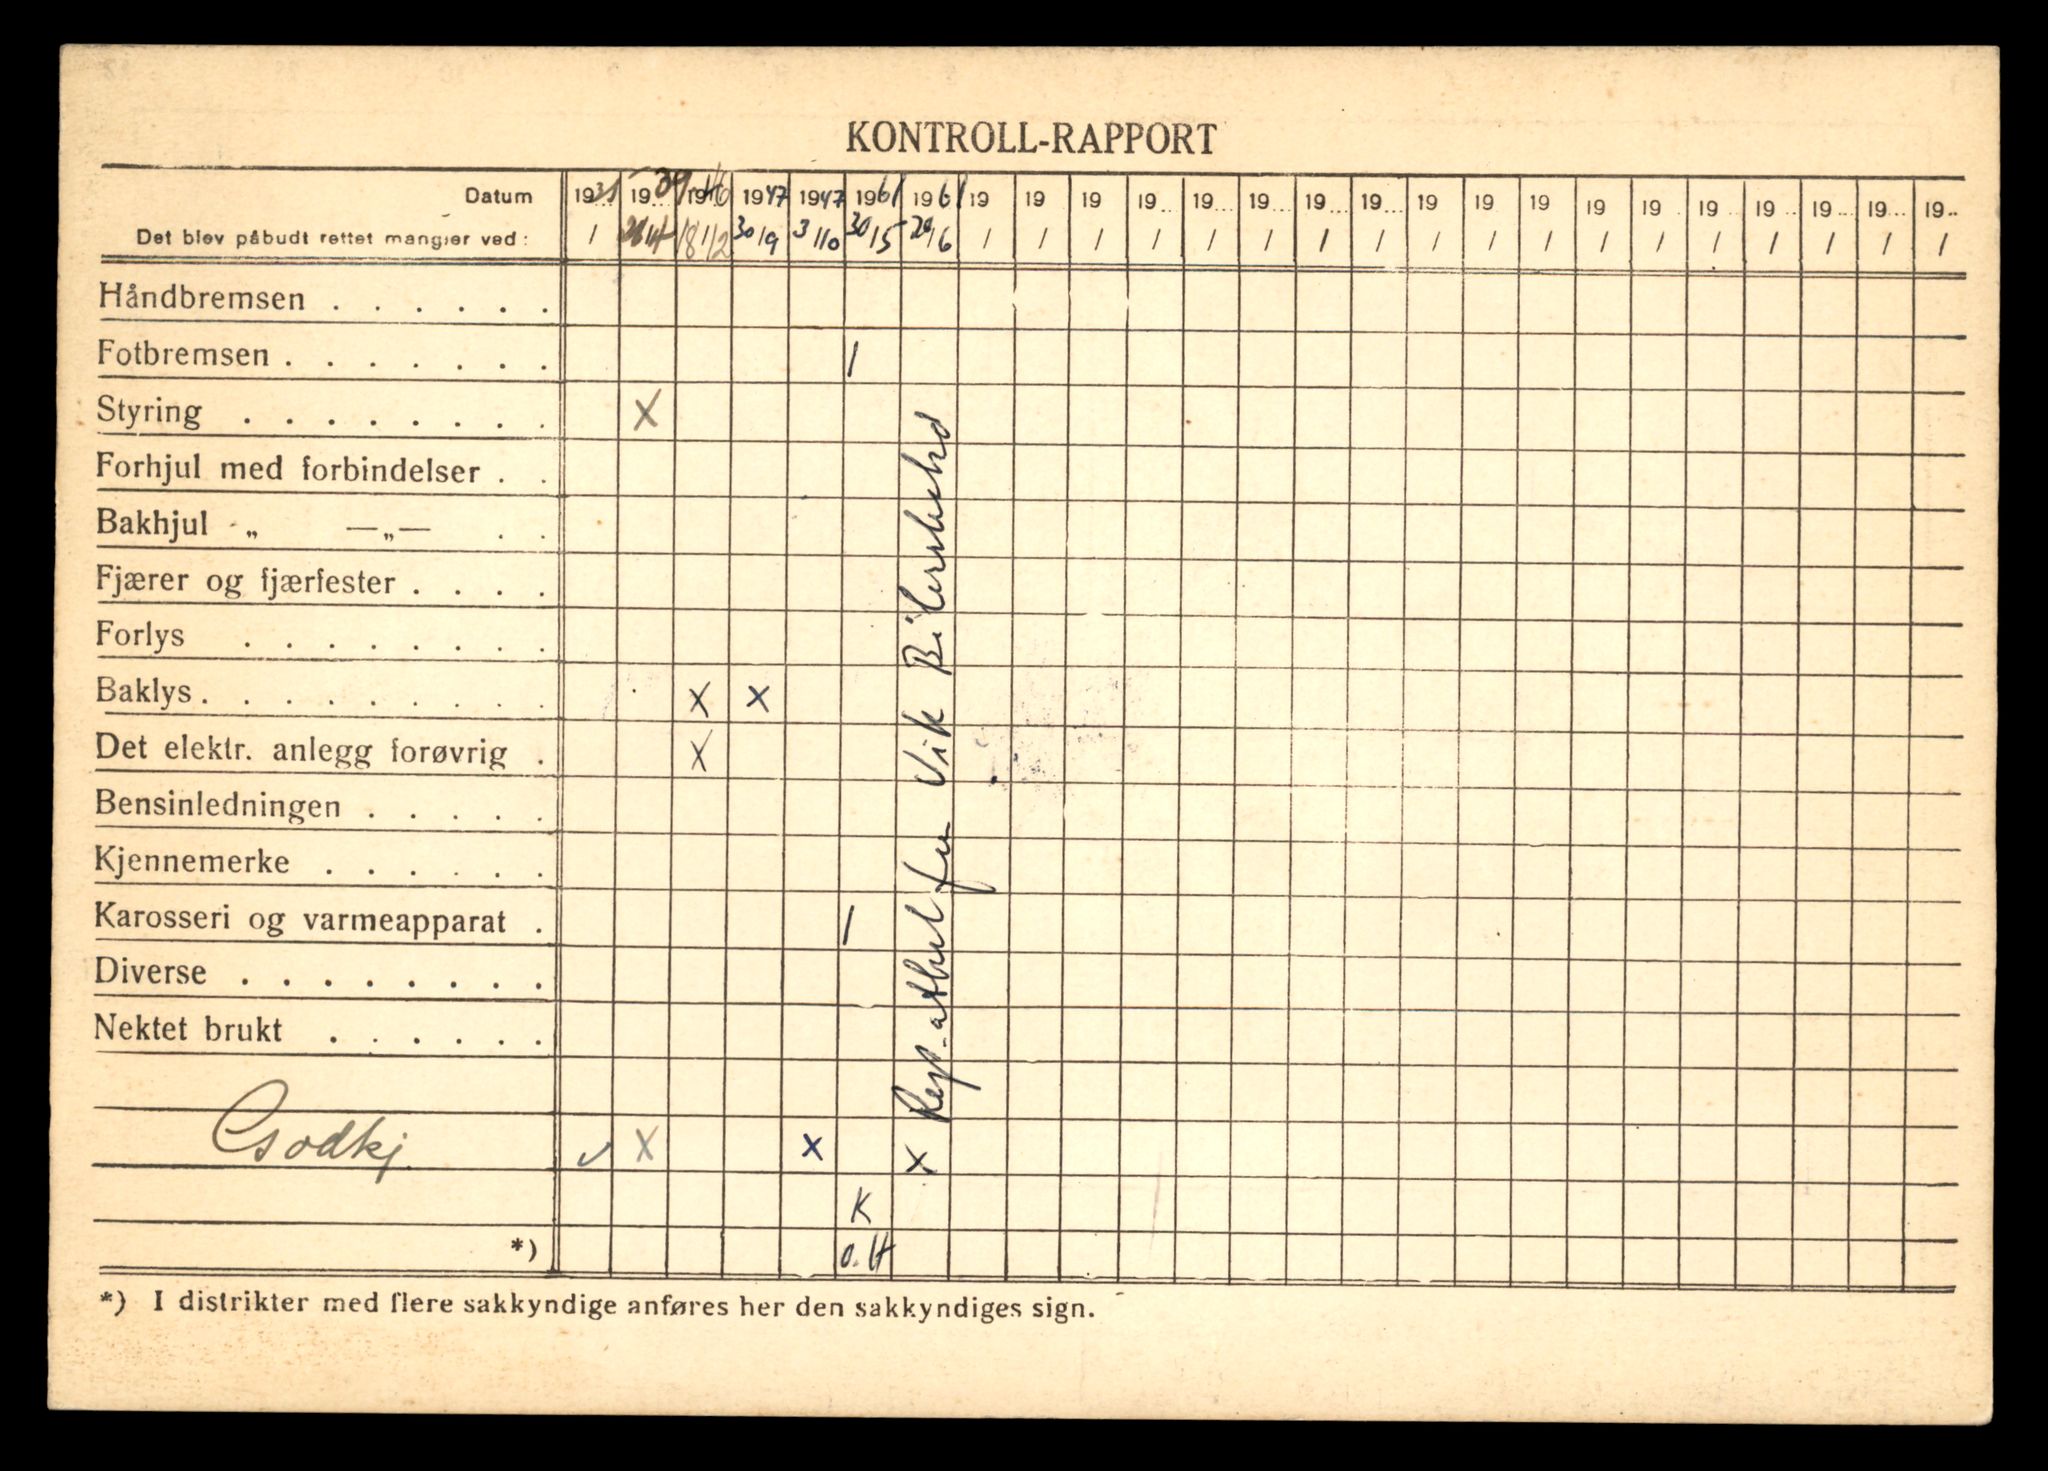 KONTROLL-RAPPORT
Datum 19 31 19 39 19 46 1947 1947 1961 1961 19 19 19 19 19 19 19 19 19 19 19 19 19 19 19 19 19 19
Det blev påbudt rettet mangler ved: / 28/4 18/12 30/9 3/10 30/5 29/6 / / / / / / / / / / / / / / / / / /
Håndbremsen . . . . . .
Fotbremsen . . . . . . . /
Styring . . . . . . . . X
Forhjul med forbindelser . .
Bakhjul „ —„— . .
Fjærer og fjærfester . . . .
Forlys . . . . . . . .
Baklys . . . . . . . . . X X
Det elektr. anlegg forøvrig . X
Bensinledningen . . . . .
Kjennemerke . . . . . .
Karosseri og varmeapparat . /
Diverse . . . . . . . .
Nektet brukt . . . . . .
Godkj. ✓ X X X Rep. Vik
K
*) O.H
*) I distrikter med flere sakkyndige anføres her den sakkyndiges sign.